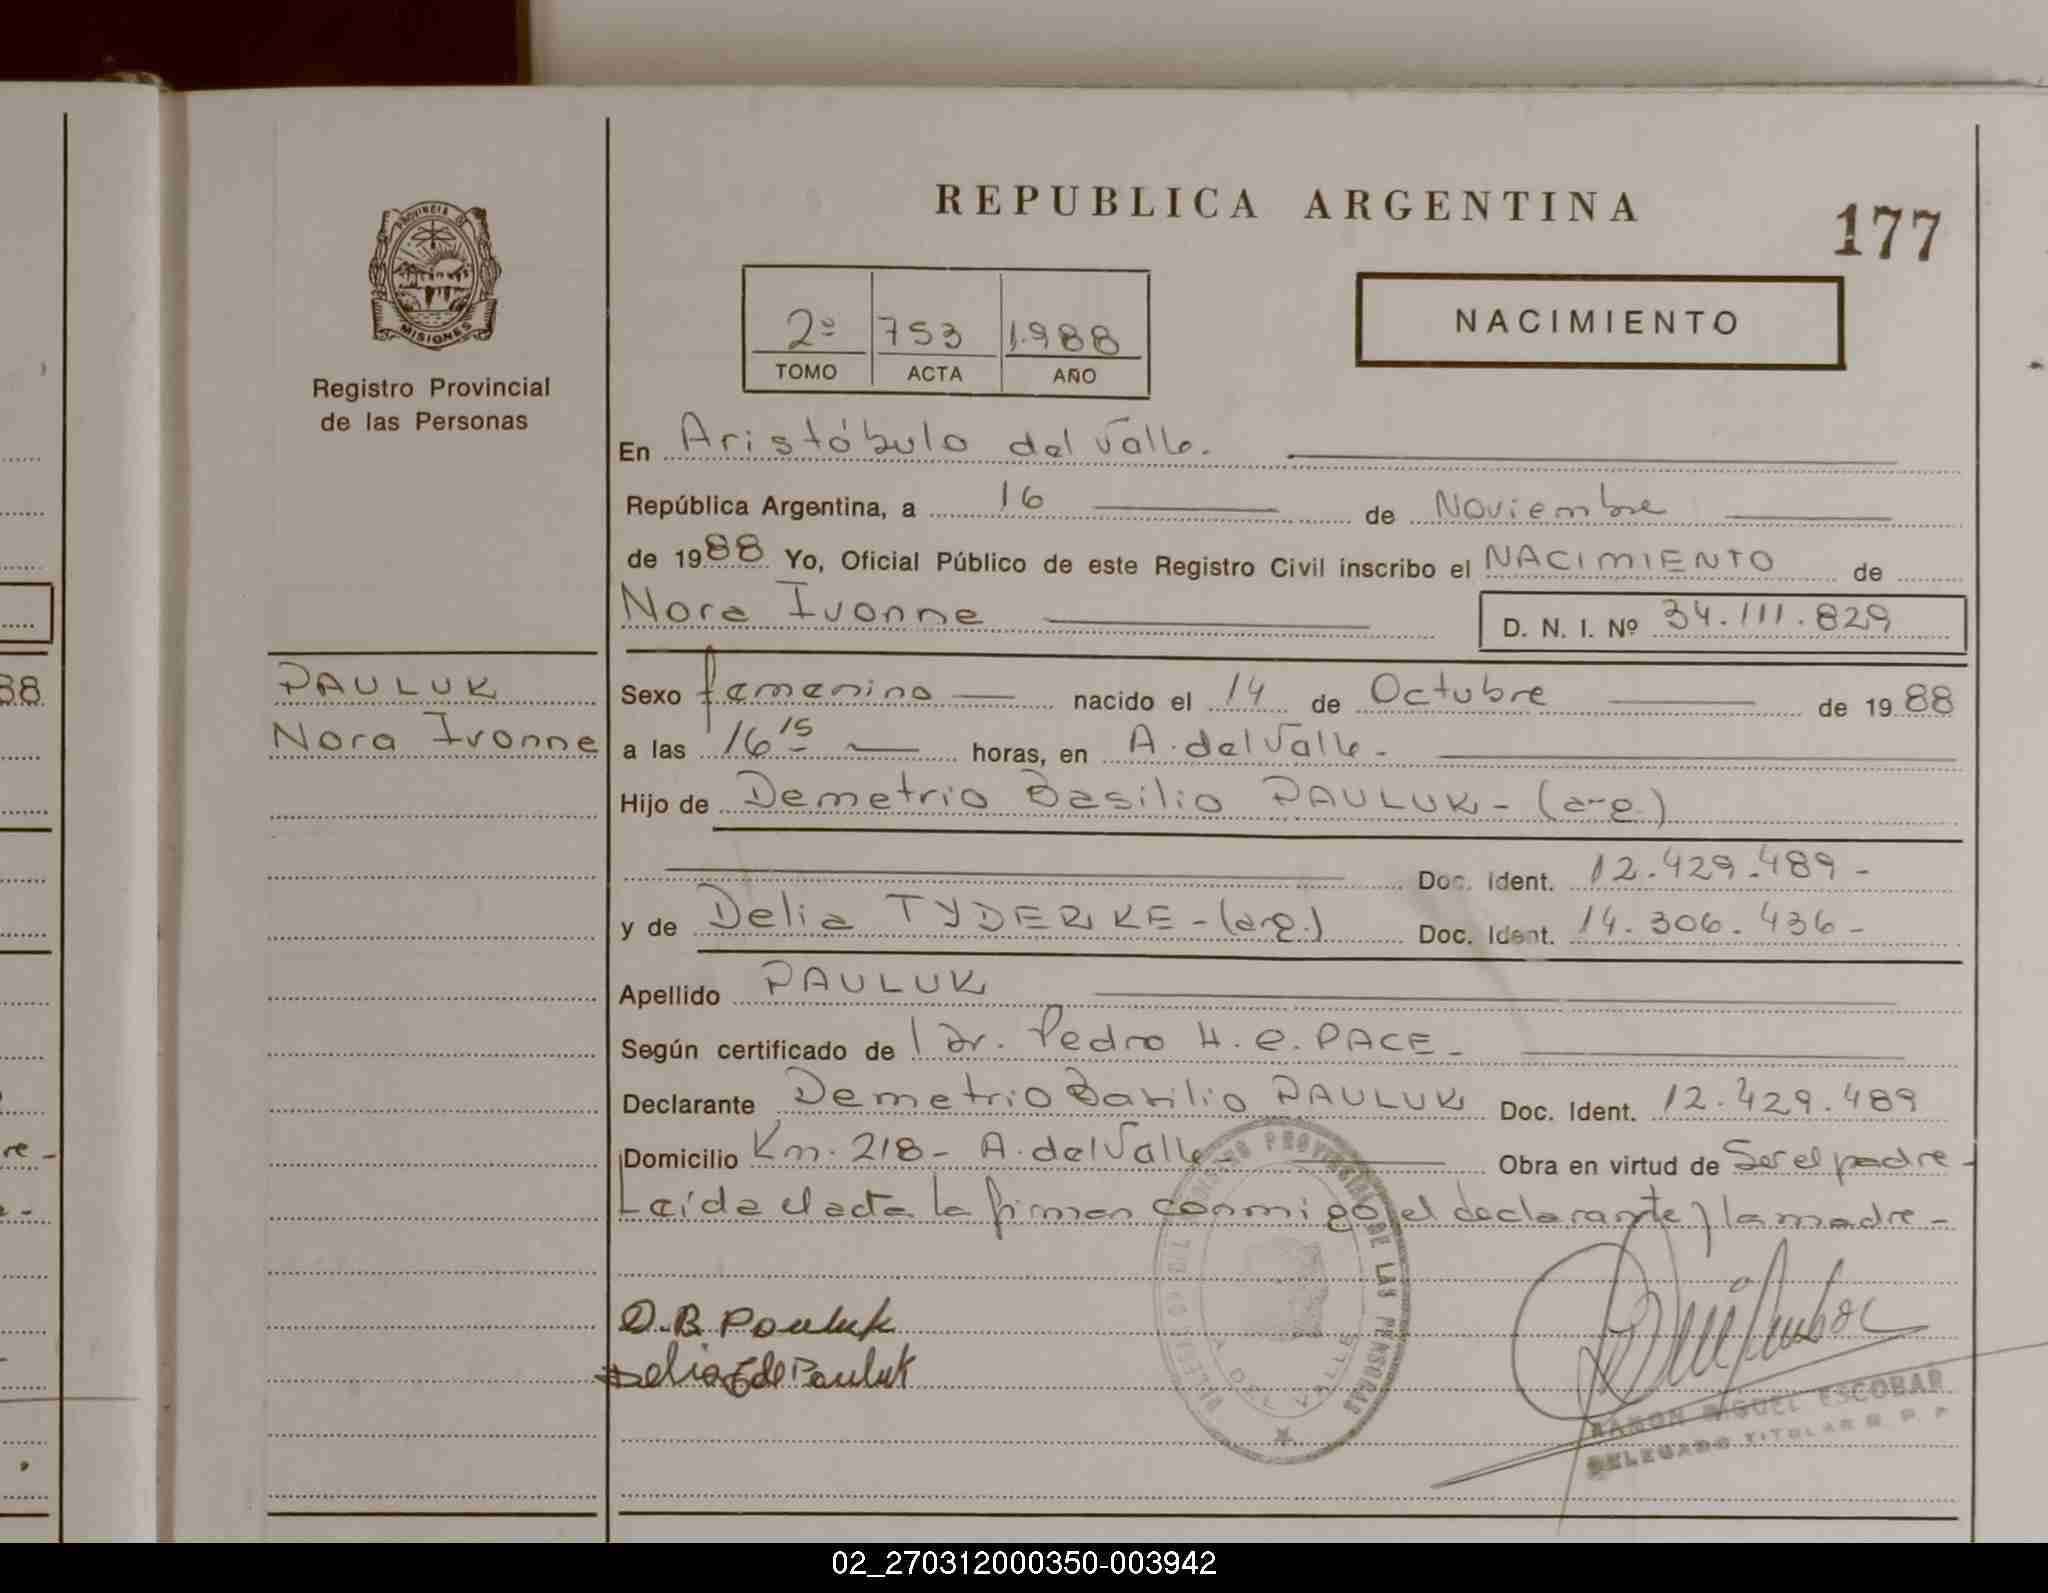 REPUBLICA ARGENTINA
177
PROVINCIA DE
MISIONES
Registro Provincial
de las Personas
2º 753 1.988
TOMO ACTA AÑO
NACIMIENTO
En Aristóbulo del Valle.
República Argentina, a 16 de Noviembre
de 1988 Yo, Oficial Público de este Registro Civil inscribo el NACIMIENTO de
Nora Ivonne
D. N. I. Nº 34.111.829
88
PAULUK
Nora Ivonne
Sexo femenino nacido el 14 de Octubre de 1988
a las 16 15 horas, en A. del Valle-
Hijo de Demetrio Basilio PAULUK- (arg.)
Doc. Ident. 12.429.489-
y de Delia TYDERKE-(arg.) Doc. Ident. 14.306.436-
Apellido PAULUK
Según certificado de Dr. Pedro H. e. PACE-
Declarante Demetrio Basilio PAULUK Doc. Ident. 12.429.489
re-
Domicilio Km. 218- A. del Valle- Obra en virtud de Ser el padre-
Leída el acta la firman conmigo, el declarante y la madre-
D.B. Pauluk
Delia de Pauluk
PROVINCIAL DE LAS PERSONAS
A. DEL VALLE
RAMON MIGUEL ESCOBAR
DELEGADO TITULAR R. P. P.
02_270312000350-003942